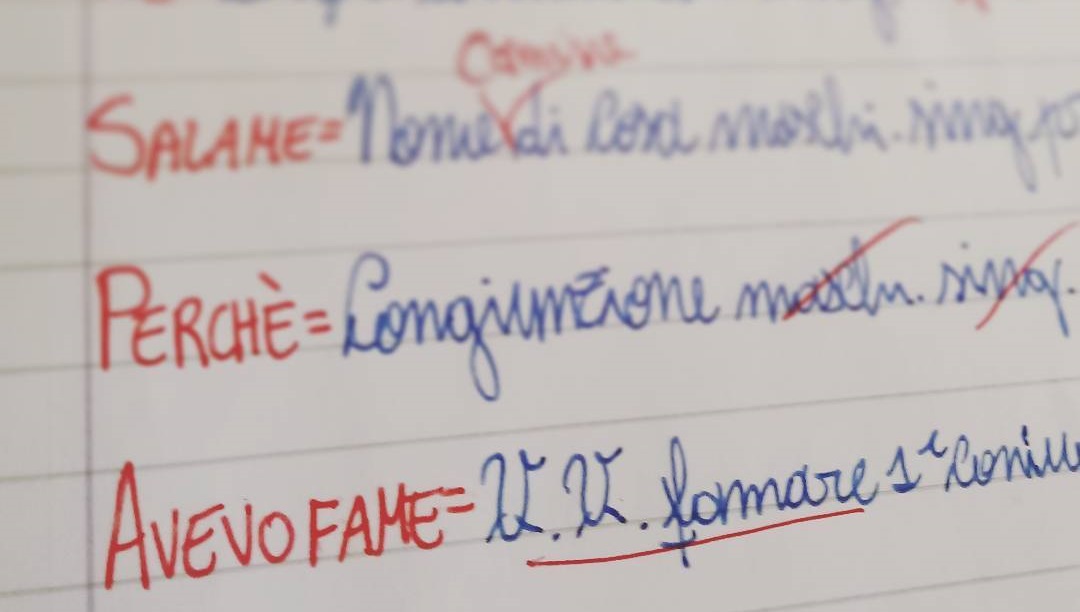 Comune
SALAME = Nome di cosa masch. sing. p
PERCHÈ = Congiunzione masch. sing.
AVEVO FAME = V. V. famare 1ª coniu